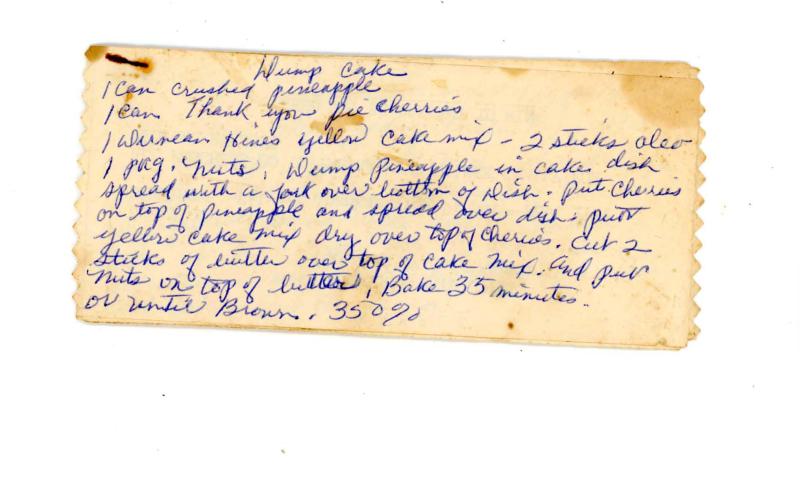 Dump Cake
1 Can crushed pineapple
1 Can Thank you pie cherries
1 Duncan Hines yellow cake mix - 2 sticks oleo
1 pkg. nuts, Dump Pineapple in cake dish
spread with a fork over bottom of dish. put cheries
on top of pineapple and spread over dish. put
yellow cake mix dry over top of cheries. Cut 2
sticks of butter over top of cake mix. and put
nuts on top of butter, Bake 35 minutes.
or until Brown. 350%